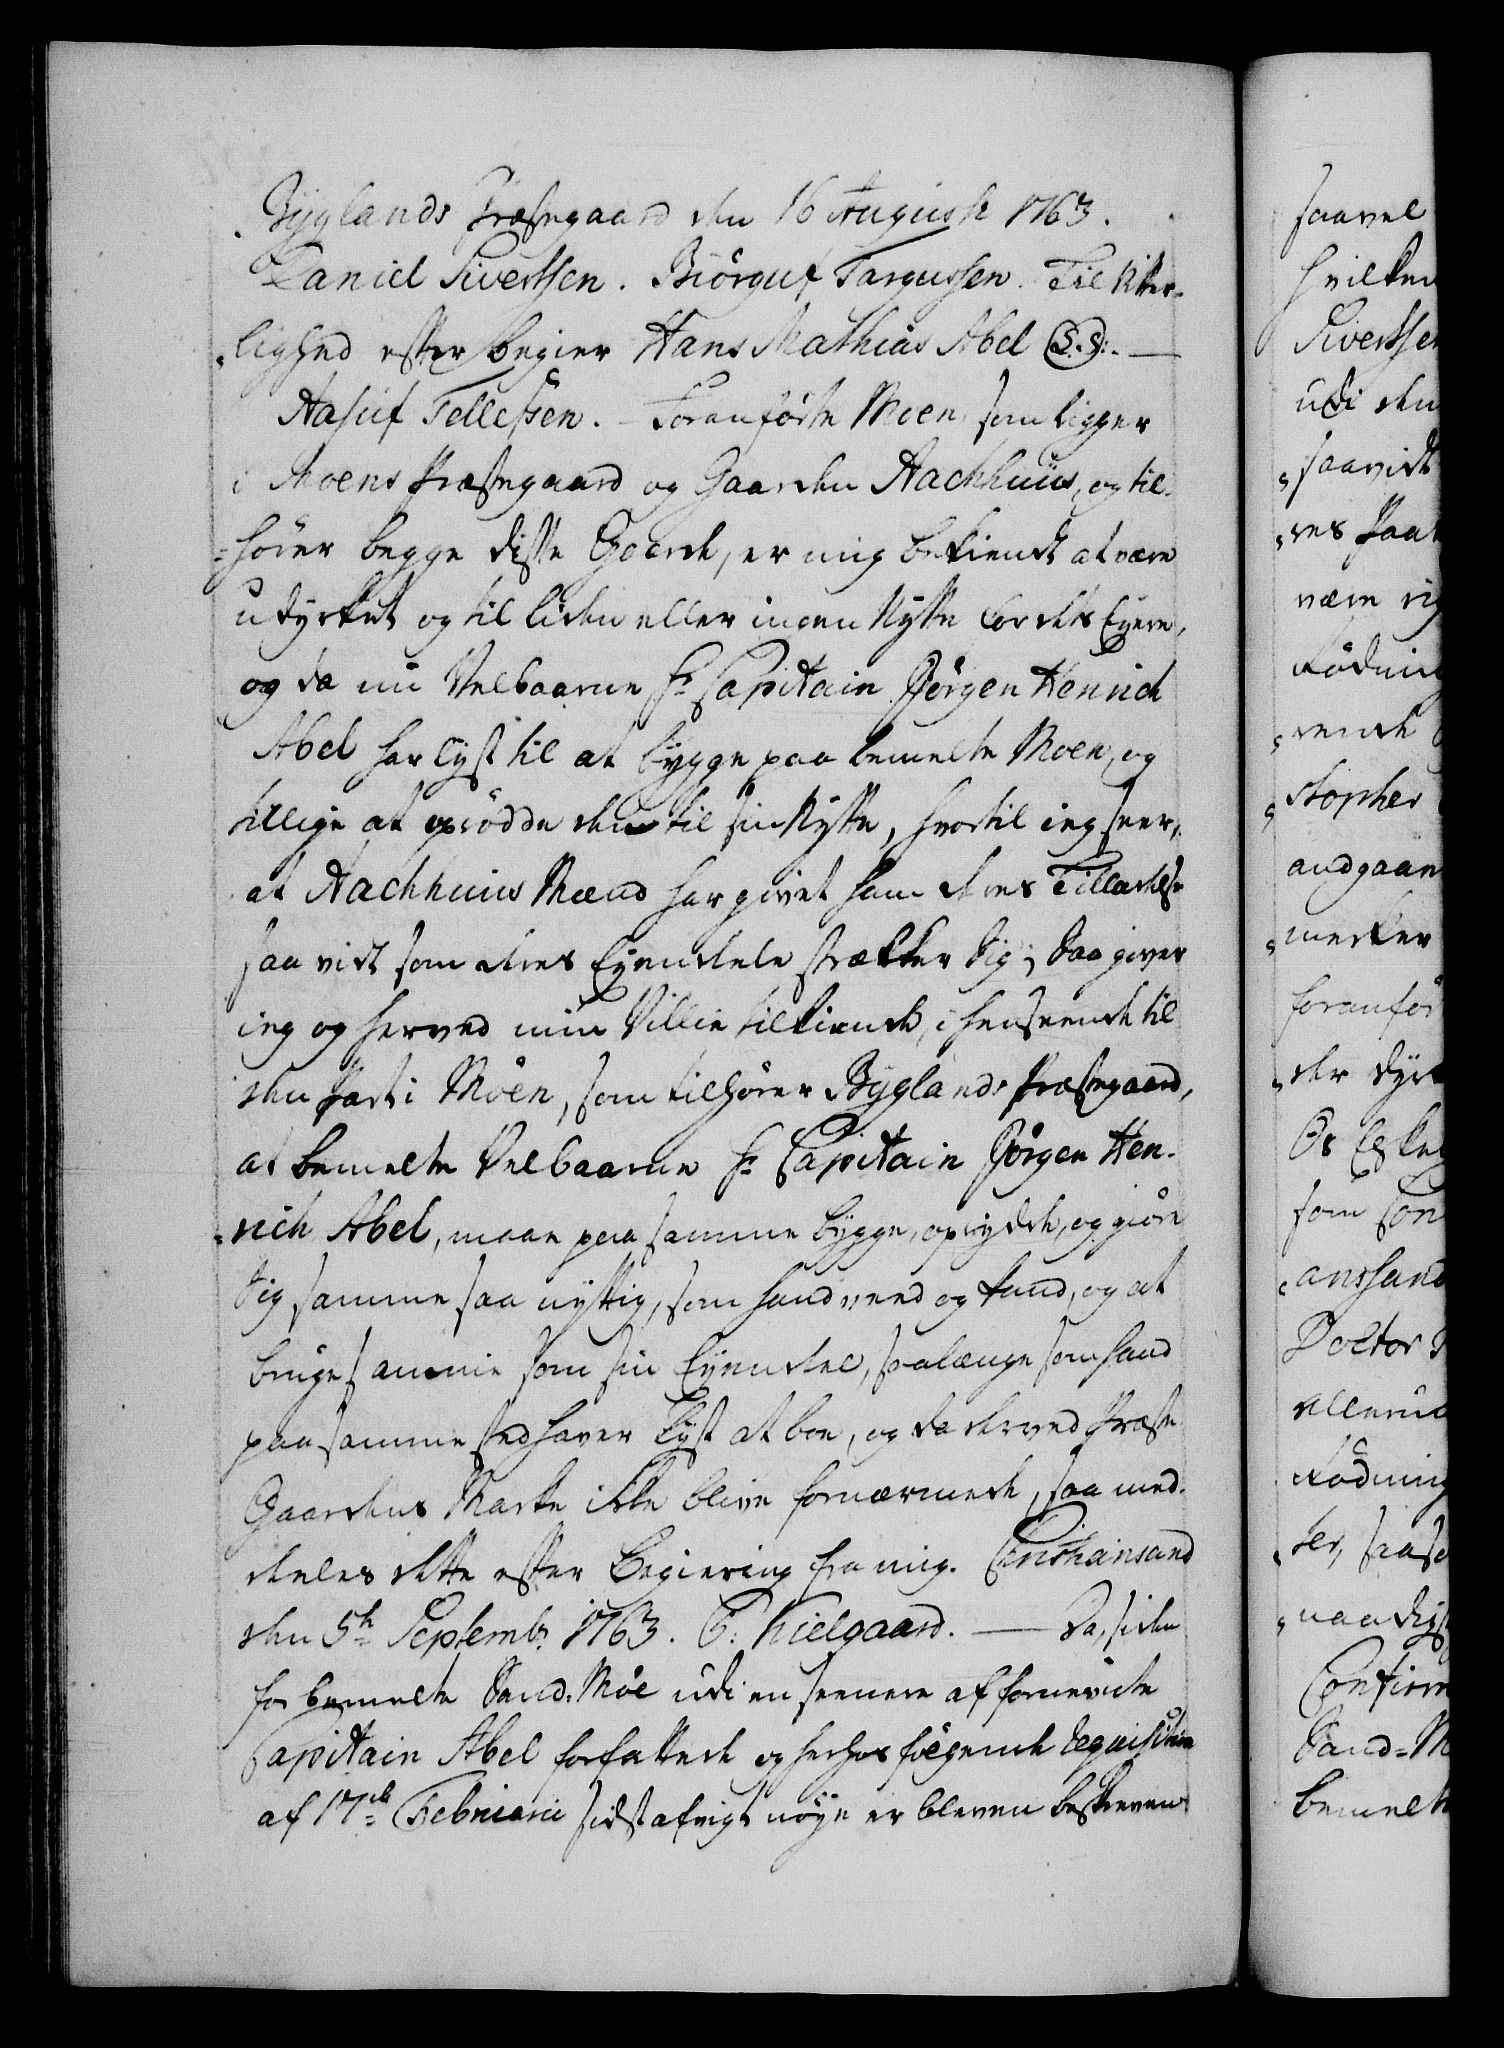 Byglands Præstegaard den 16 Augusti 1763.
Daniel Sivertsen. Biörguf Targussen. Til Vitter-
lighed efter begier Hans Mathias Abel (L.S.) —
Aasuf Tellefsen. — Foranförte Moen, som ligger
i Moens Præstegaard og Gaarden Aachhuus, og til-
hörer begge disse Gaarde, er mig bekiendt at være
udyrket og til liden eller ingen Nytte for dets Eyere,
og da nu Velbaarne Hr Capitain Jörgen Henrich
Abel har lyst til at bygge paa bemelte Moen, og
tillige at oprödde den til sin Nytte, hvortil ieg seer,
at Aachhuus Mænd har givet ham deres Tilladelse
saa vidt som deres Eyendele strækker sig; Saa giver
ieg og herved min Villie tilkiende, i henseende til
den Part i Möen, som tilhörer Byglands Præstegaard,
at bemelte Velbaarne Hr Capitain Jörgen Hen-
rich Abel, maae paa samme bygge, oprydde, og giöre
sig samme saa nyttig, som hand veed og kand, og at
bruge samme som sin Eyendel, saalænge som hand
paa samme sted haver Lyst at boe, og da derved Præste
Gaardens Marke ikke blive fornærmede, saa med-
deles dette efter Begiering fra mig. Christiansand
den 5te Septembr 1763. C. Kielgaard. — Da, siden
for bemelte Sand-Möe udi en seenere af fornevnte
Capitain Abel forfattede og herhos fölgende Requisition
af 17de Februarii sidstafvigt nöye er bleven beskreven
saavel
hvilken
Sivertsen
udi den
saavidt
res Paa
være rig
Rödning
rende
stopher
andgaae
merker
foranför
der dyr
Os
som Con
ansand
Doctor
Allerun
Rödning
ter, saa
naadigst
Confirm
Sand-M
bemelte